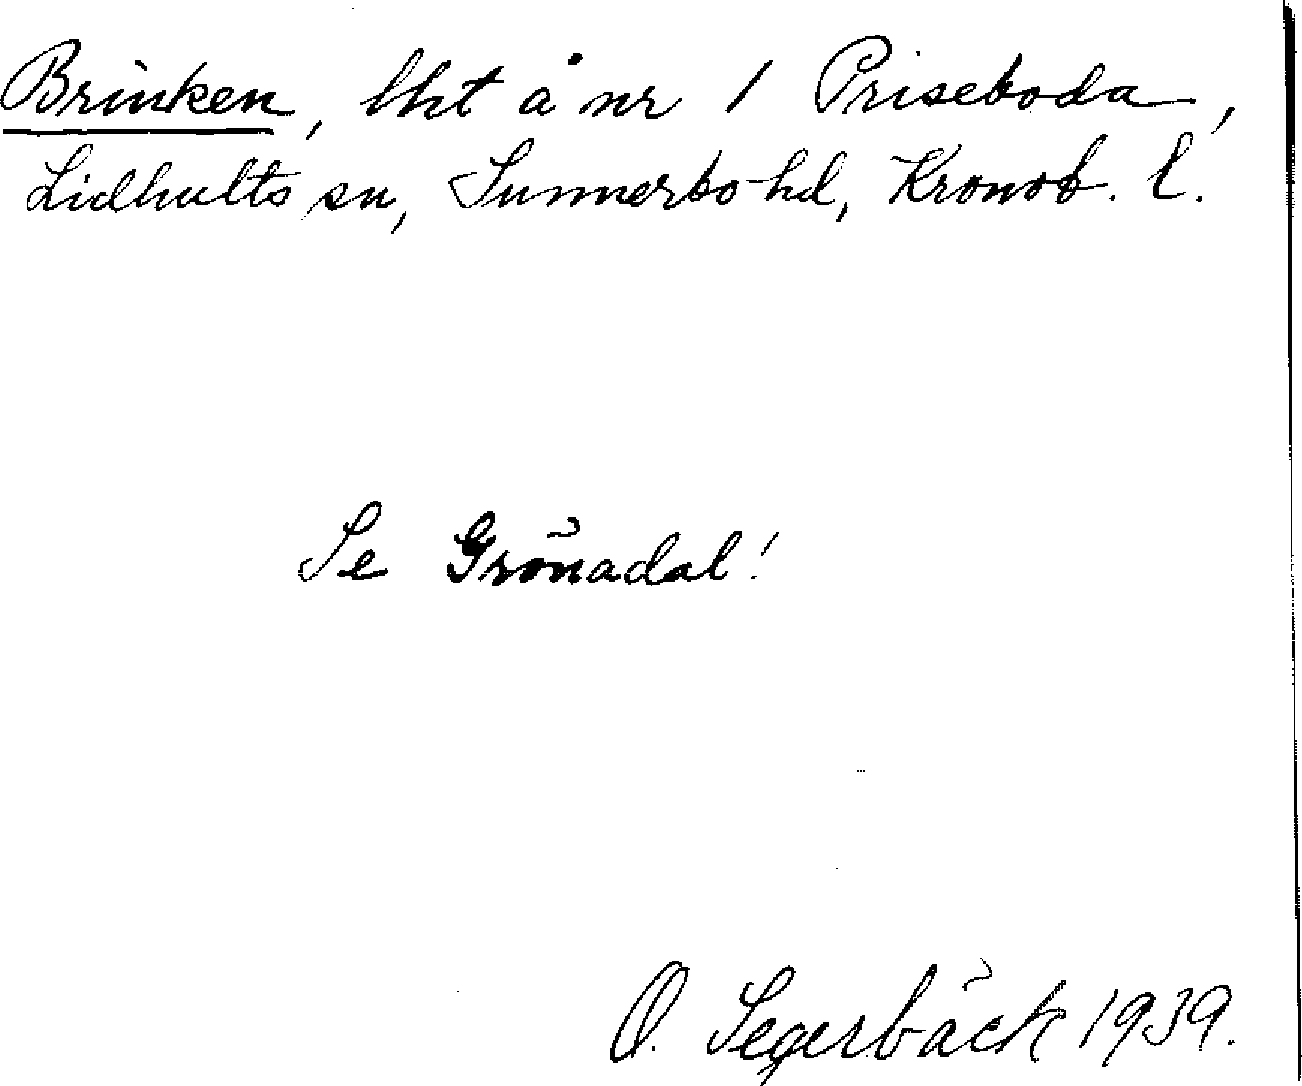 Brinken, lht å nr 1 Priseboda,
Lidhults sn, Sunnerbo hd, Kronob. l.
Se Grönadal!
O. Segerbäck 1939.